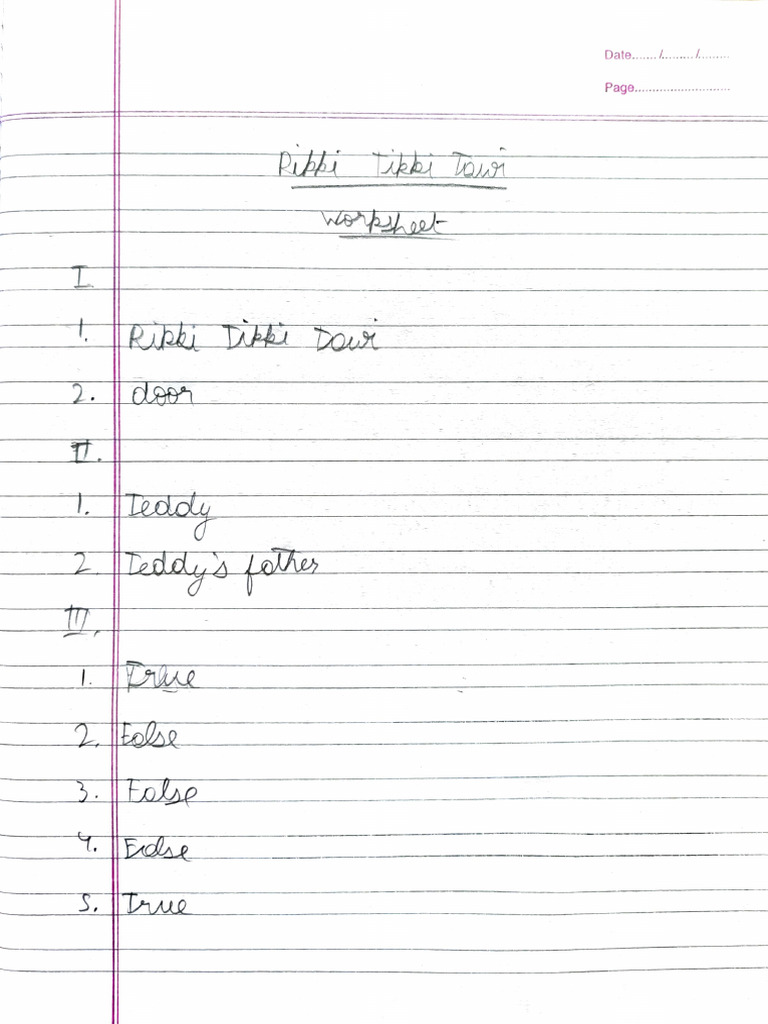 Date......./........./.........
Page...........................
Rikki Tikki Tawi
Worksheet
I
1. Rikki Tikki Tawi
2. door
II.
1. Teddy
2. Teddy's father
III.
1. True
2. False
3. False
4. False
5. True